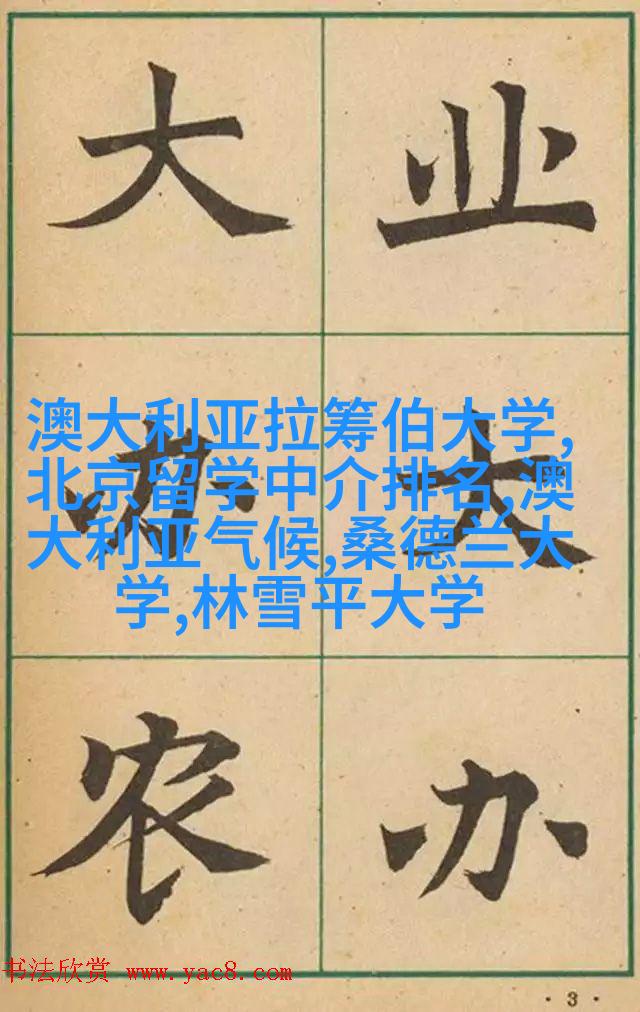 业大办
大办农
澳大利亚拉筹伯大学,
北京留学中介排名,澳
大利亚气候,桑德兰大
学,林雪平大学
书法欣赏 www.yac8.com
·3·